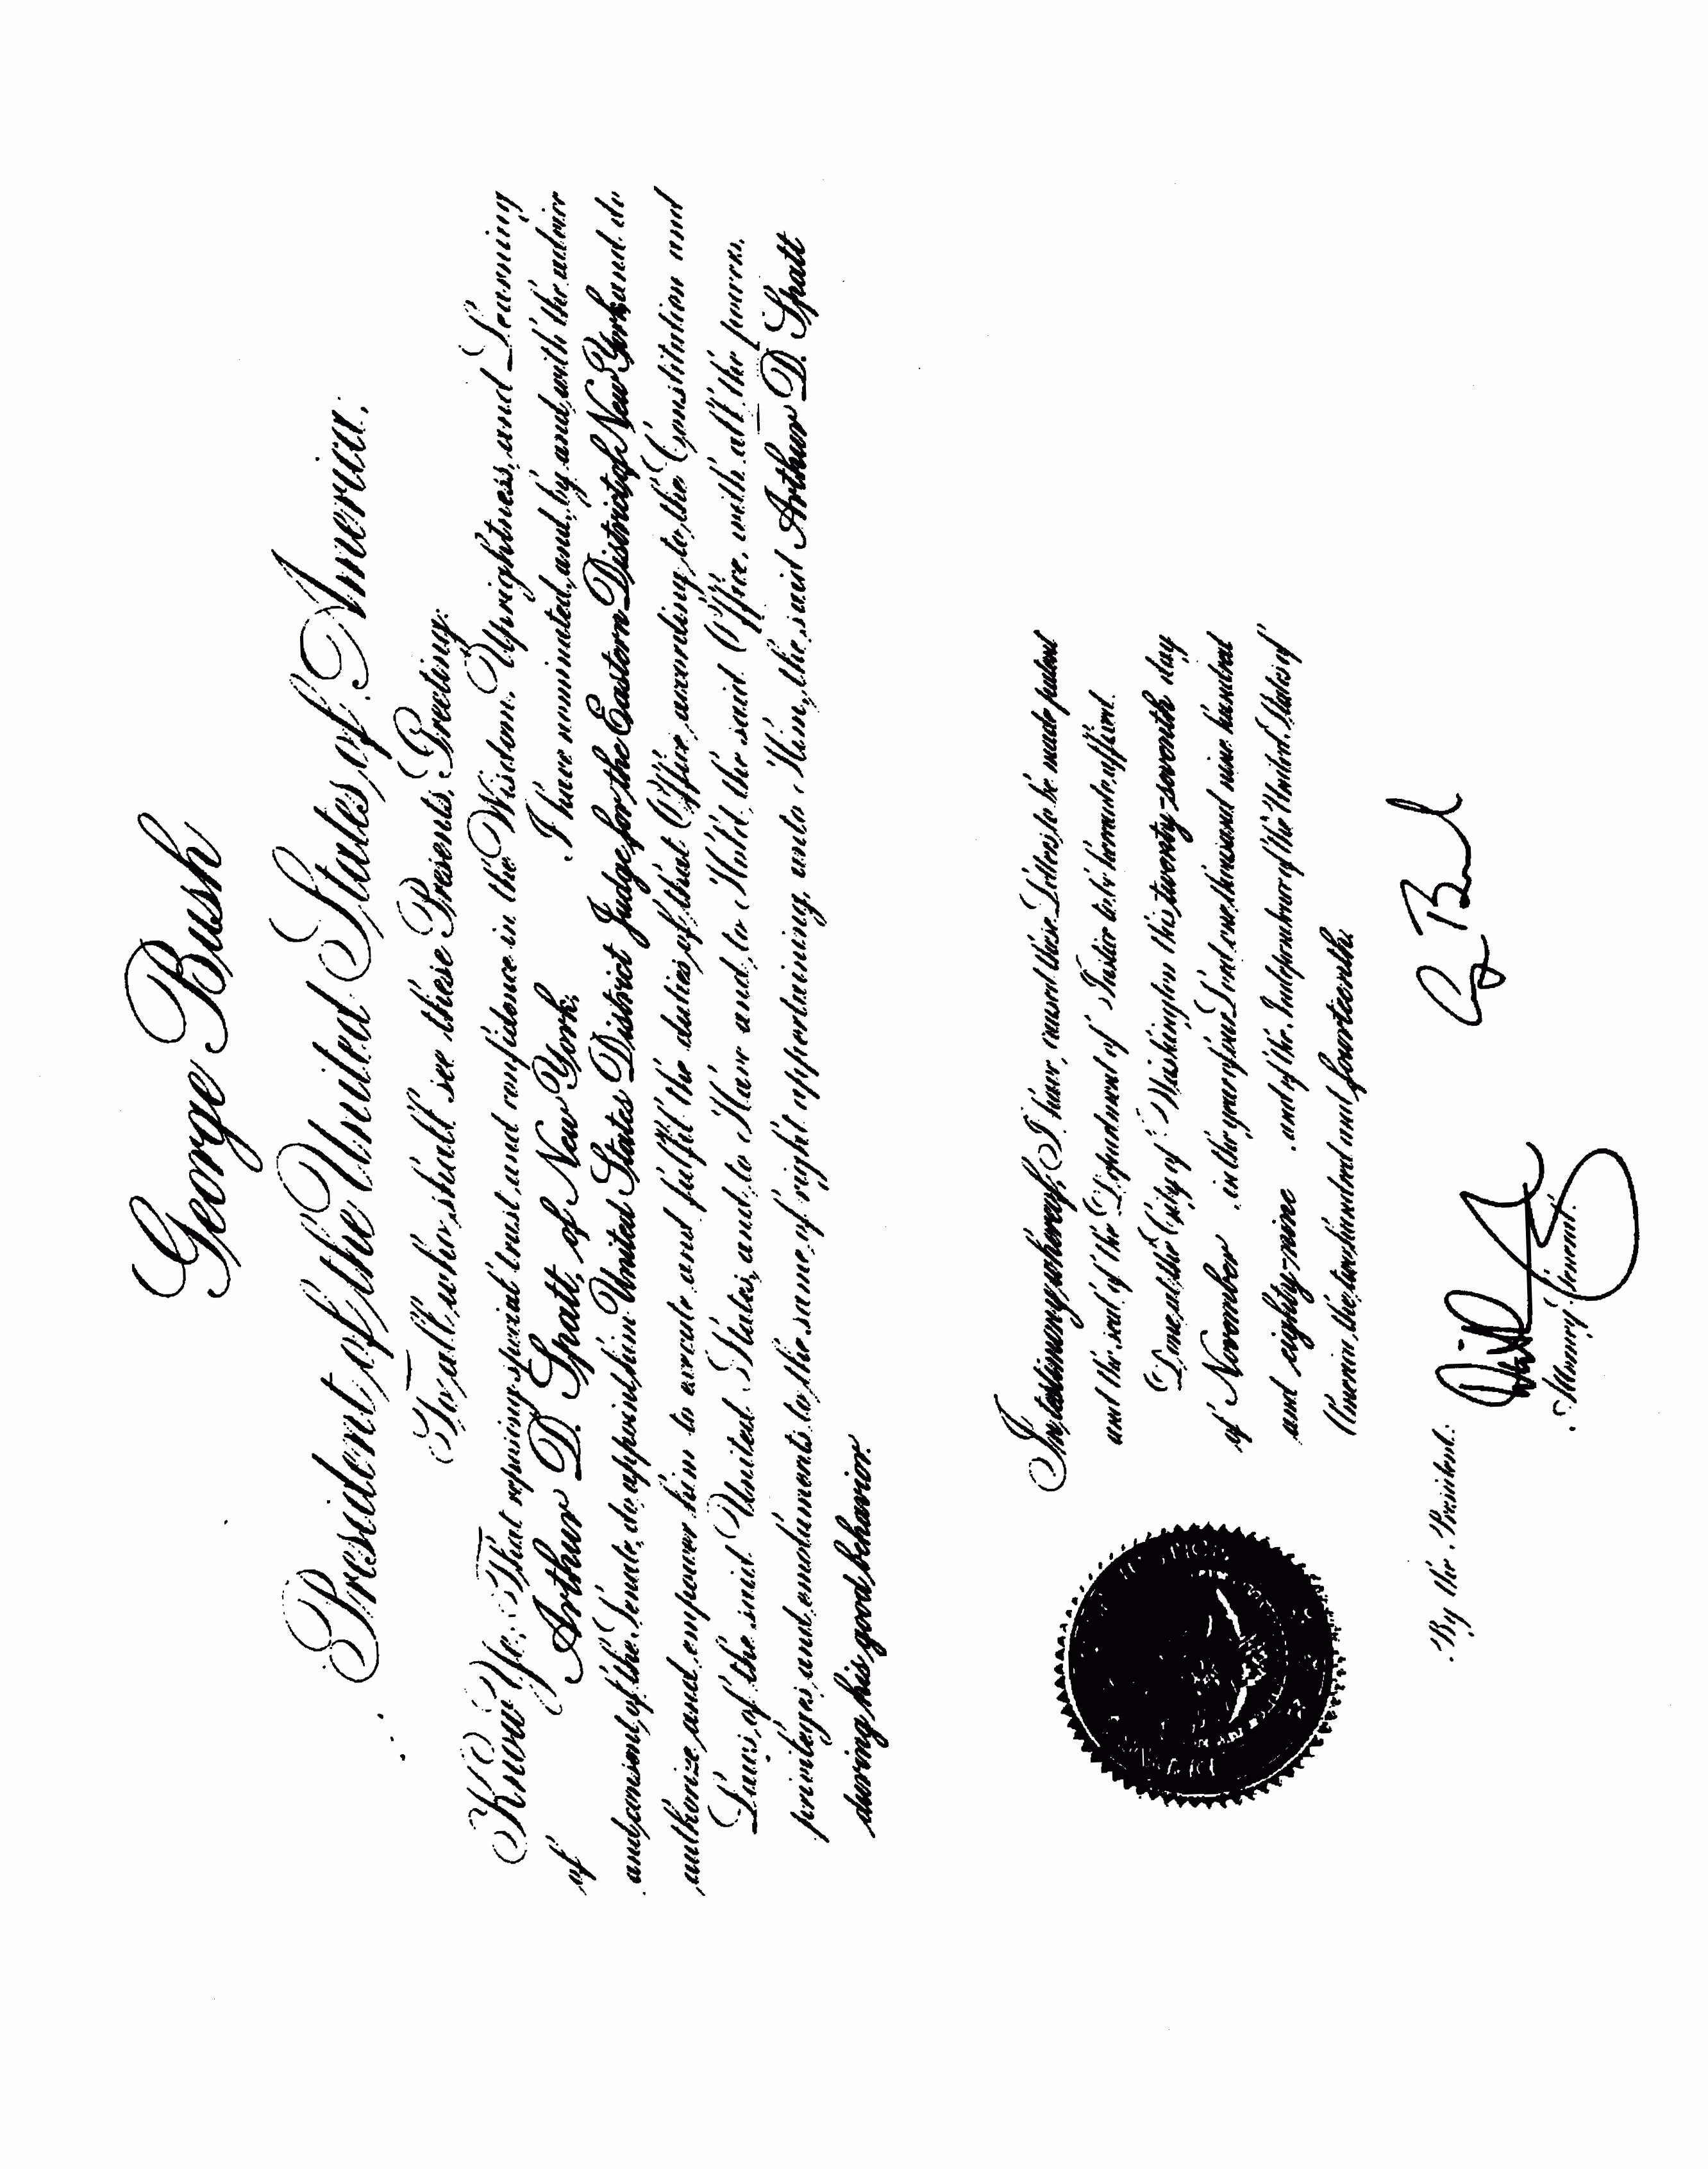 George Bush
President of the United States of America.
To all who shall see these Presents, Greeting:
Know Ye: That reposing special trust and confidence in the Wisdom, Uprightness, and Learning
of Arthur D. Spatt, of New York, I have nominated, and, by and with the advice
and consent of the Senate, do appoint him United States District Judge for the Eastern District of New York and do
authorize and empower him to execute and fulfil the duties of that Office according to the Constitution and
Laws of the said United States, and to Have and to Hold the said Office, with all the powers,
privileges, and emoluments to the same of right appertaining, unto Him, the said Arthur D. Spatt
during his good behavior.
In testimony whereof, I have caused these Letters to be made patent
and the seal of the Department of Justice to be hereunto affixed.
Done at the City of Washington this twenty-seventh day
of November in the year of our Lord one thousand nine hundred
and eighty-nine and of the Independence of the United States of
America the two hundred and fourteenth.
G Bush
By the President:
Attorney General.